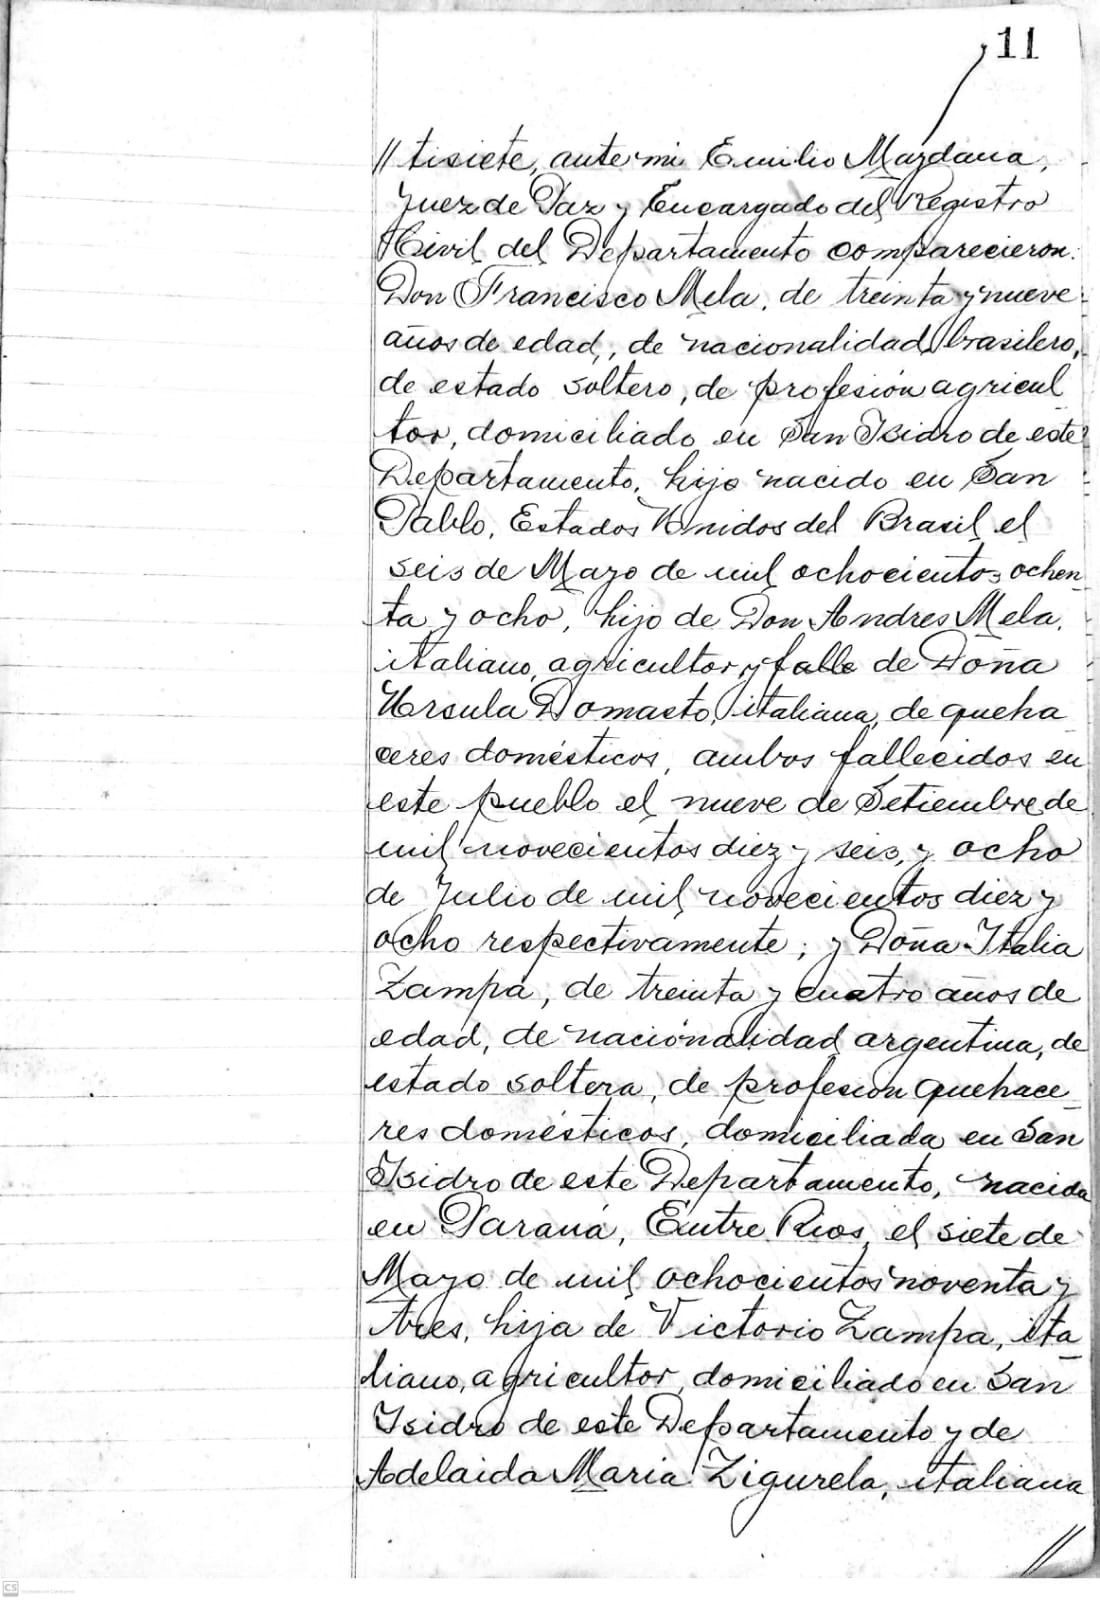 11
// tisiete, ante mi Emilio Mazdana,
Juez de Paz y Encargado del Registro
Civil del Departamento comparecieron:
Don Francisco Mela, de treinta y nueve
años de edad, de nacionalidad brasilero,
de estado soltero, de profesión agricul
tor, domiciliado en San Isidro de este
Departamento, hijo nacido en San
Pablo, Estados Unidos del Brasil el
seis de Mayo de mil ochocientos ochen
ta y ocho, hijo de Don Andres Mela,
italiano, agricultor y falle de Doña
Ursula Domasto, italiana, de queha
ceres domésticos, ambos fallecidos en
este pueblo el nueve de Setiembre de
mil novecientos diez y seis, y ocho
de Julio de mil novecientos diez y
ocho respectivamente; y Doña Italia
Zampa, de treinta y cuatro años de
edad, de nacionalidad argentina, de
estado soltera, de profesion quehace
res domésticos, domiciliada en San
Isidro de este Departamento, nacida
en Paraná, Entre Rios, el siete de
Mayo de mil ochocientos noventa y
tres, hija de Victorio Zampa, ita
liano, agricultor, domiciliado en San
Isidro de este Departamento y de
Adelaida Maria Zigurela, italiana
//
CS